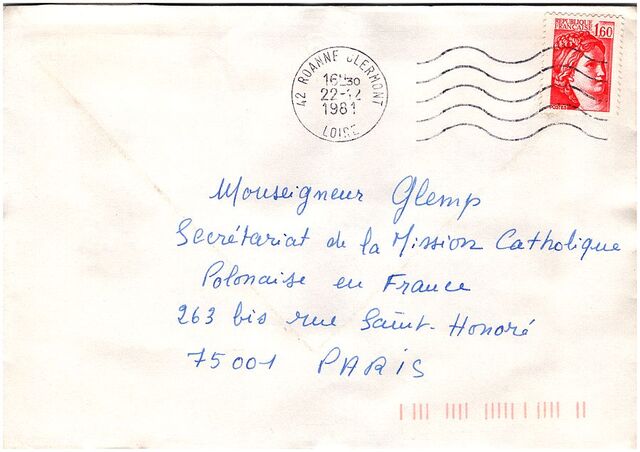 RÉPUBLIQUE
FRANÇAISE 1,60
42 ROANNE CLERMONT
16H30
22-12
1981
LOIRE
Monseigneur Glemp
Secrétariat de la Mission Catholique
Polonaise en France
263 bis rue Saint-Honoré
75001 PARIS